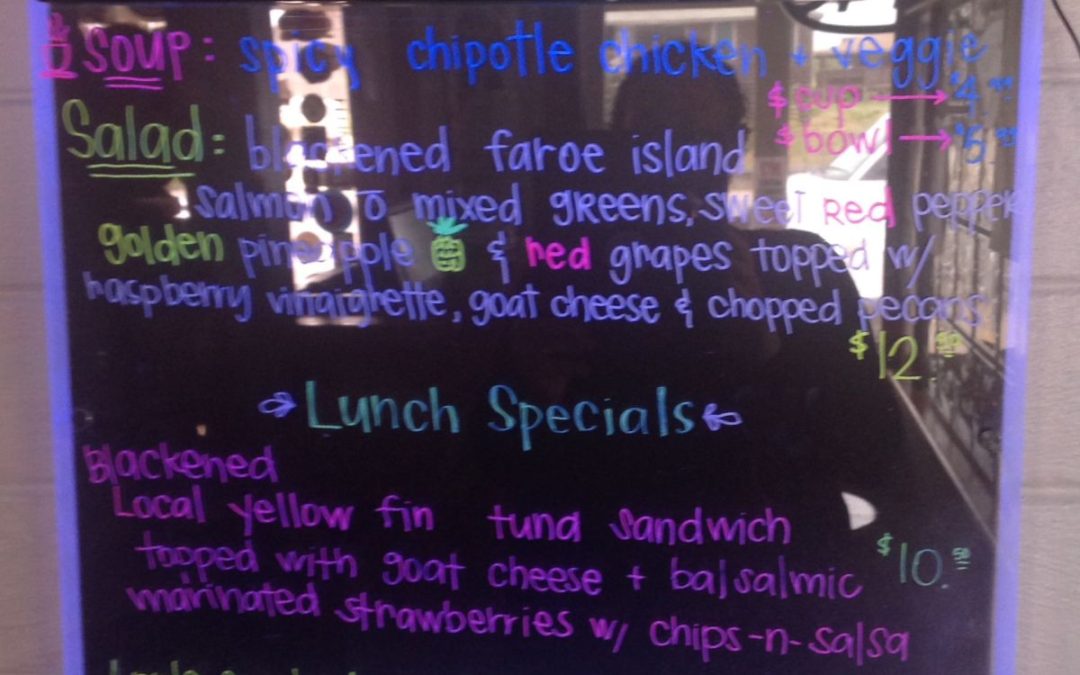 Soup: spicy chipotle chicken + veggie
$ cup → $4.99
Salad: blackened faroe island
$ bowl → $5.99
salmon ō mixed greens, sweet Red pepper
golden pineapple & red grapes topped w/
raspberry vinaigrette, goat cheese & chopped pecans
$12.50
Lunch Specials
Blackened
Local yellow fin tuna sandwich
topped with goat cheese + balsalmic
$10.50
marinated strawberries w/ chips-n-salsa